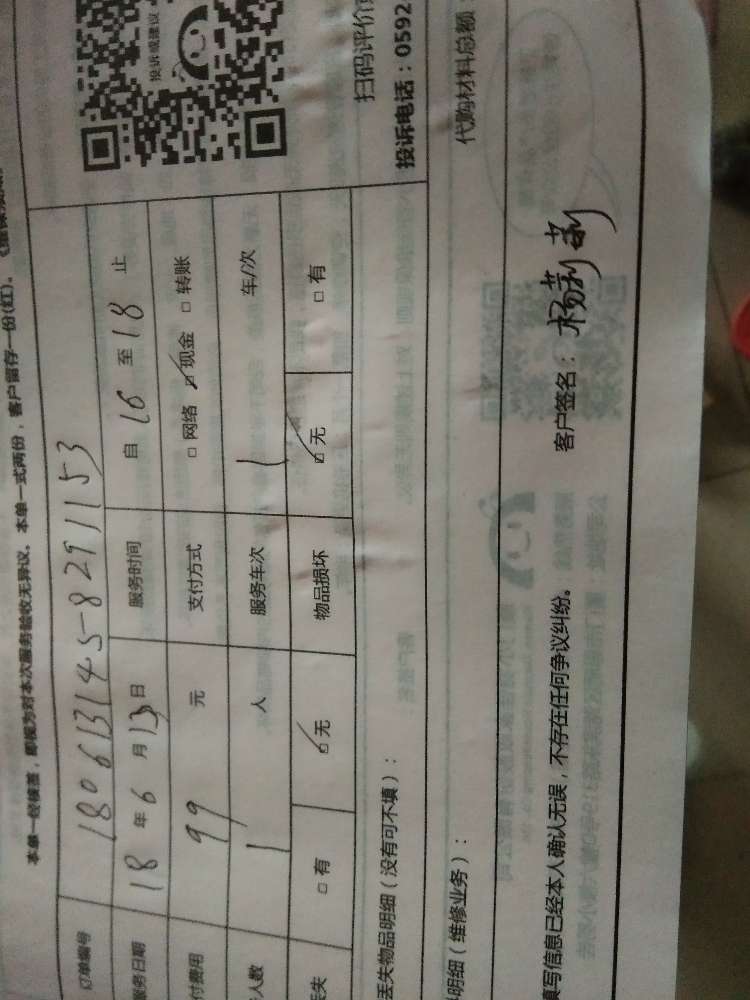 本单一经核签，即视为对本次服务验收无异议。本单一式两份，客户留存一份(红)。
订单编号 180613145-8291153
服务日期 18 年 6 月 13 日 服务时间 自 16 至 18 止
付费用 99 元 支付方式 □ 网络 ☑ 现金 □ 转账
人数 1 人 服务车次 1 车/次
丢失 □ 有 ☑ 无 物品损坏 ☑ 无 □ 有
投诉或建议
扫码评价
投诉电话：0592
丢失物品明细（没有可不填）：
明细（维修业务）： 代购材料总额
填写信息已经本人确认无误，不存在任何争议纠纷。 客户签名：杨莉莉